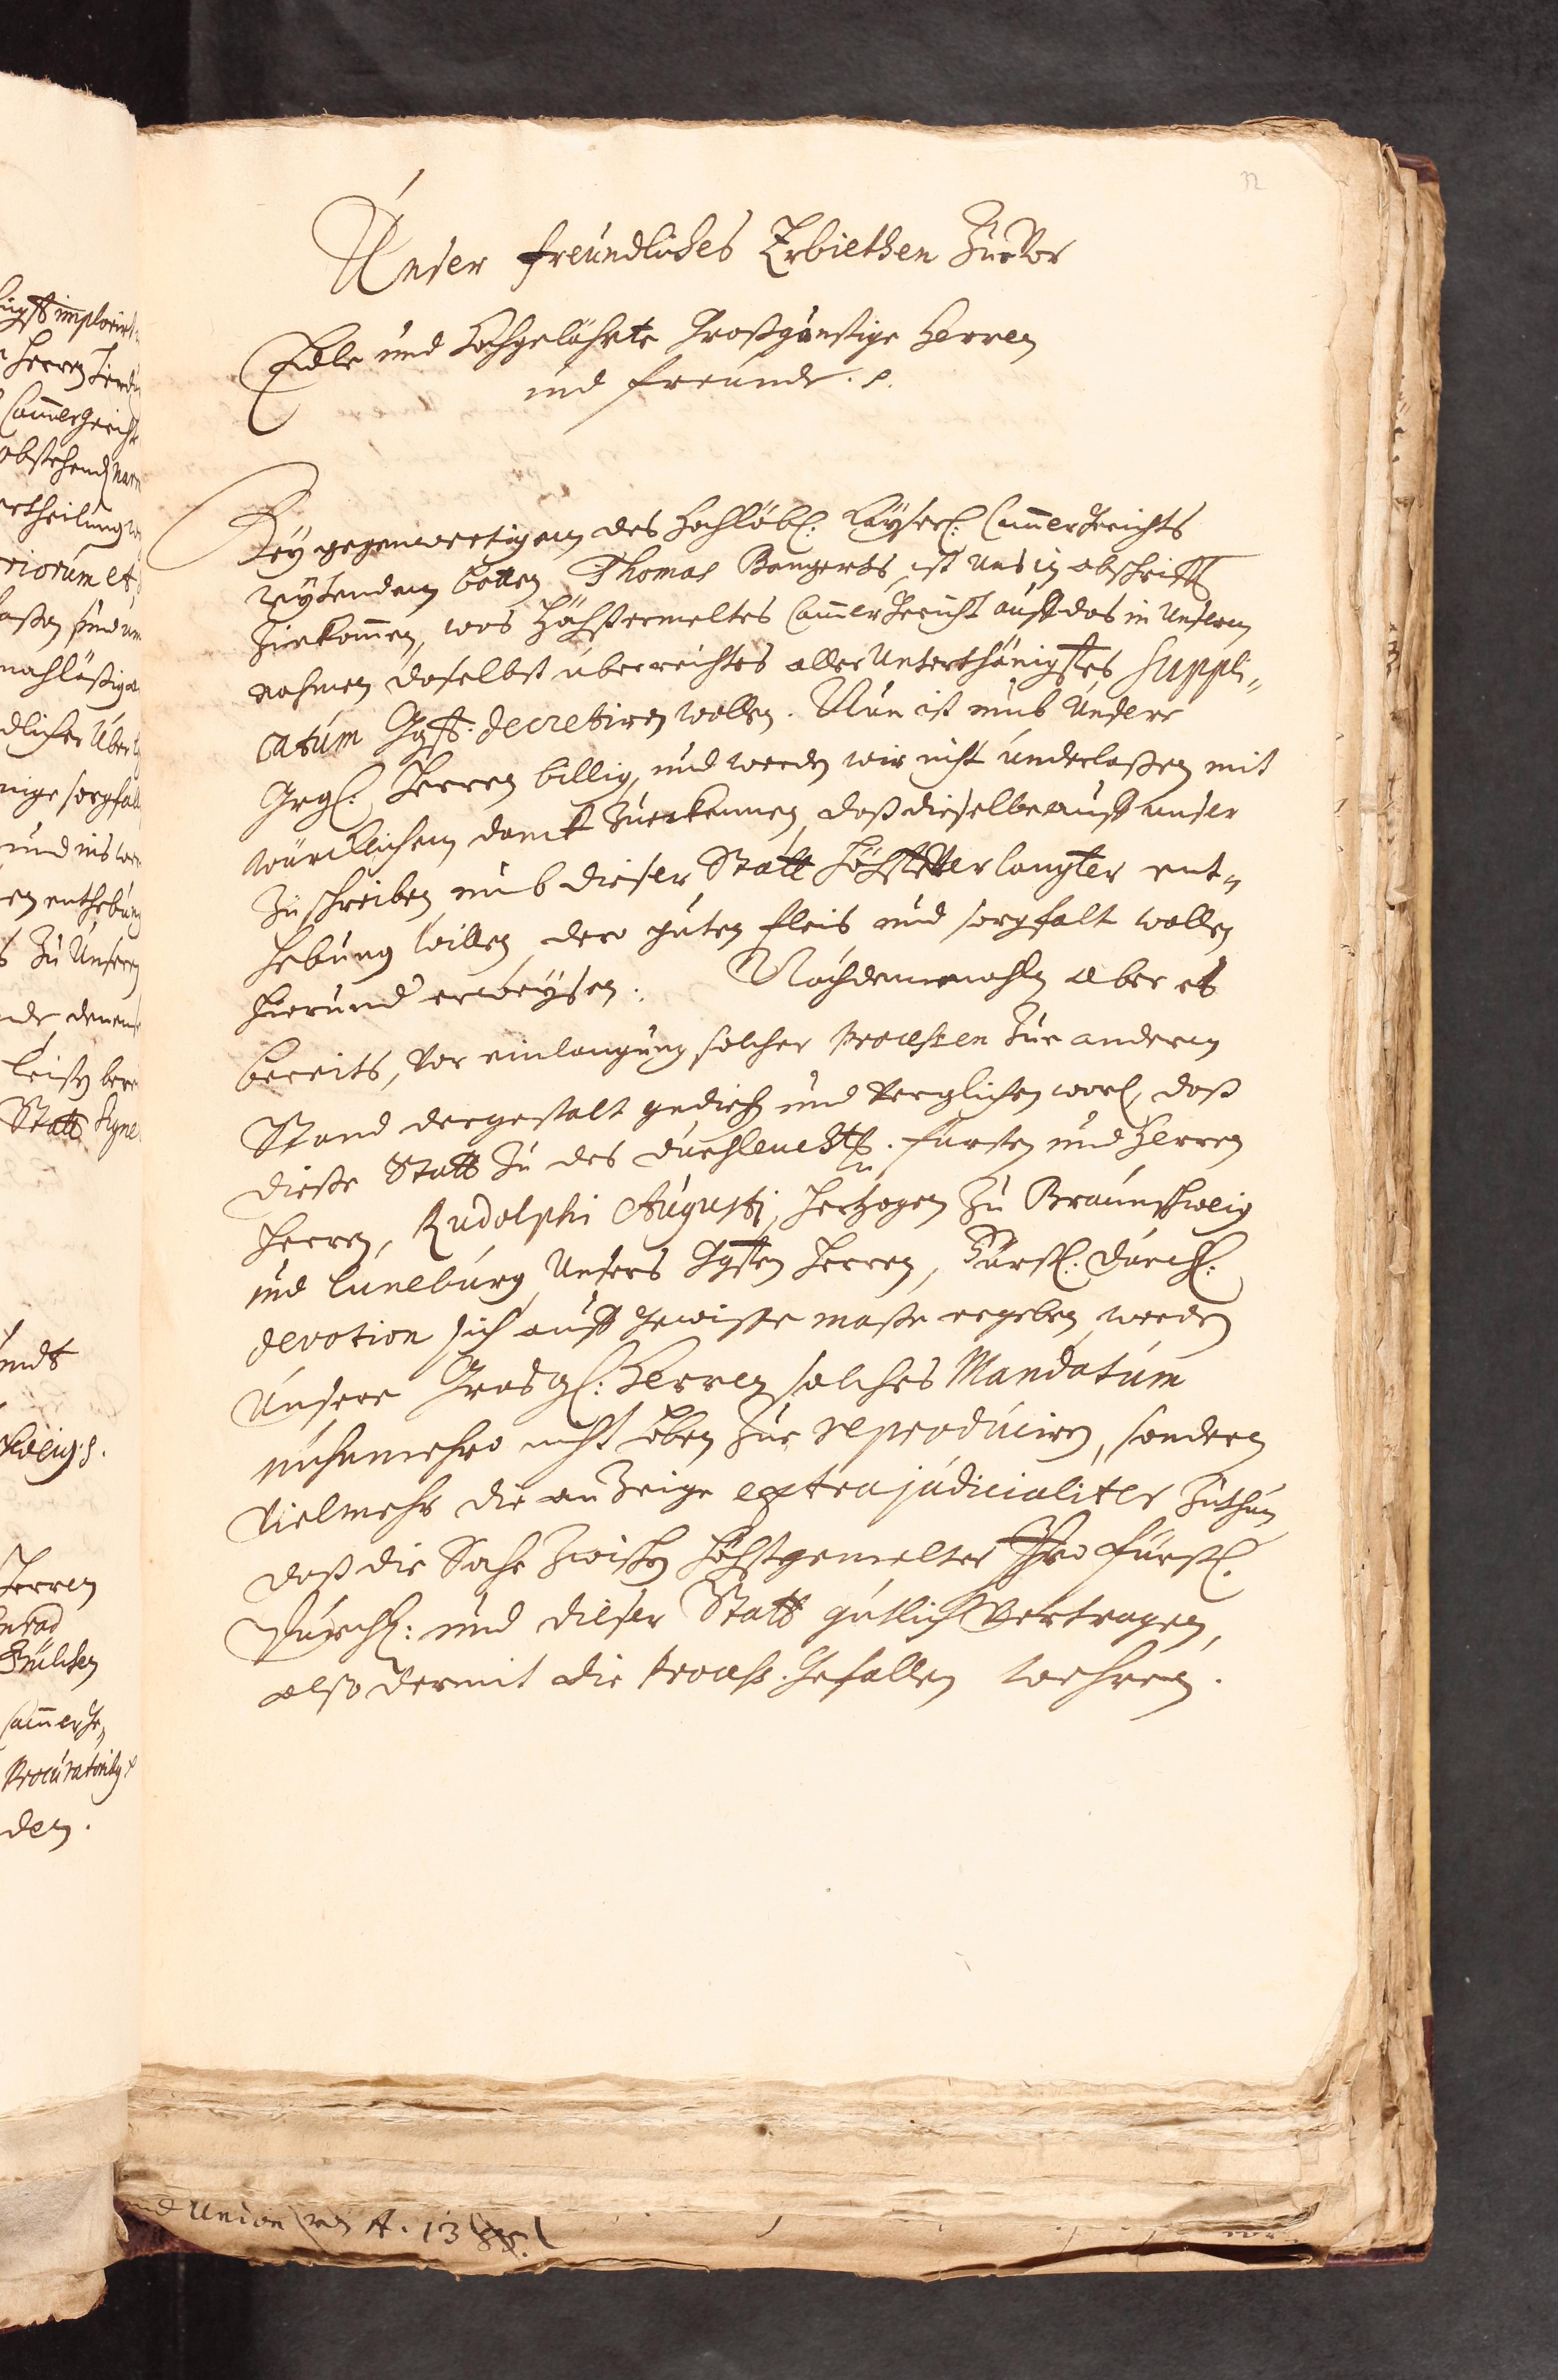 32
Unser freundliches Erbiethen Zuevor
Edle und Hochgelährte Großgünstige Herren
und freunde. p.
Bey gegenwertigem des Hochlöbl: Kayserl: Cammer Gerichts
reytendem botten Thomas Bangerts ist uns in abschrifft
Zuekommen, was Höchstermeltes Cammer Gericht auff das in Unserm
nahmen daselbst überreichtes aller Unterthänigstes suppli„
catum Ggst. decretiren wollen. Nun ist umb Unsere
Grgl: Herren billig, und werden wir nicht underlaßen mit
würcklichem danck Zuerkennen, daß dieselbe auff unser
Zuschreiben umb dieser Statt höchst Verlangter ent„
hebung willen dero guten fleis und sorgfalt wollen
hierund erweysen. Nachdemmahln aber es
bereits, vor einlangung solcher Processen Zue anderem
Stand dergestalt gediehen und verglichen word, daß
dieße Statt Zu des durchleuchtt. fursten und Herren
Herren, Rudolphi Augusti, Hertzogen Zu Braunschweig
und Luneburg, Unsers Ggsten Herren, Fürstl. Durchl:
devotion sich auff gewisse maße ergeben, werden
Unsere Grosgl: Herren solches Mandatum
nuhnmehro nicht eben Zue reproduciren, sondern
Vielmehr die anzeige extrajudicialiter Zuthun
daß die Sache zwischen höchstgemelter Ihro fürstl.
Durchl: und dieser Statt gütlich Vertragen,
also darmit die Process. gefallen wehren.
Union von A. 13